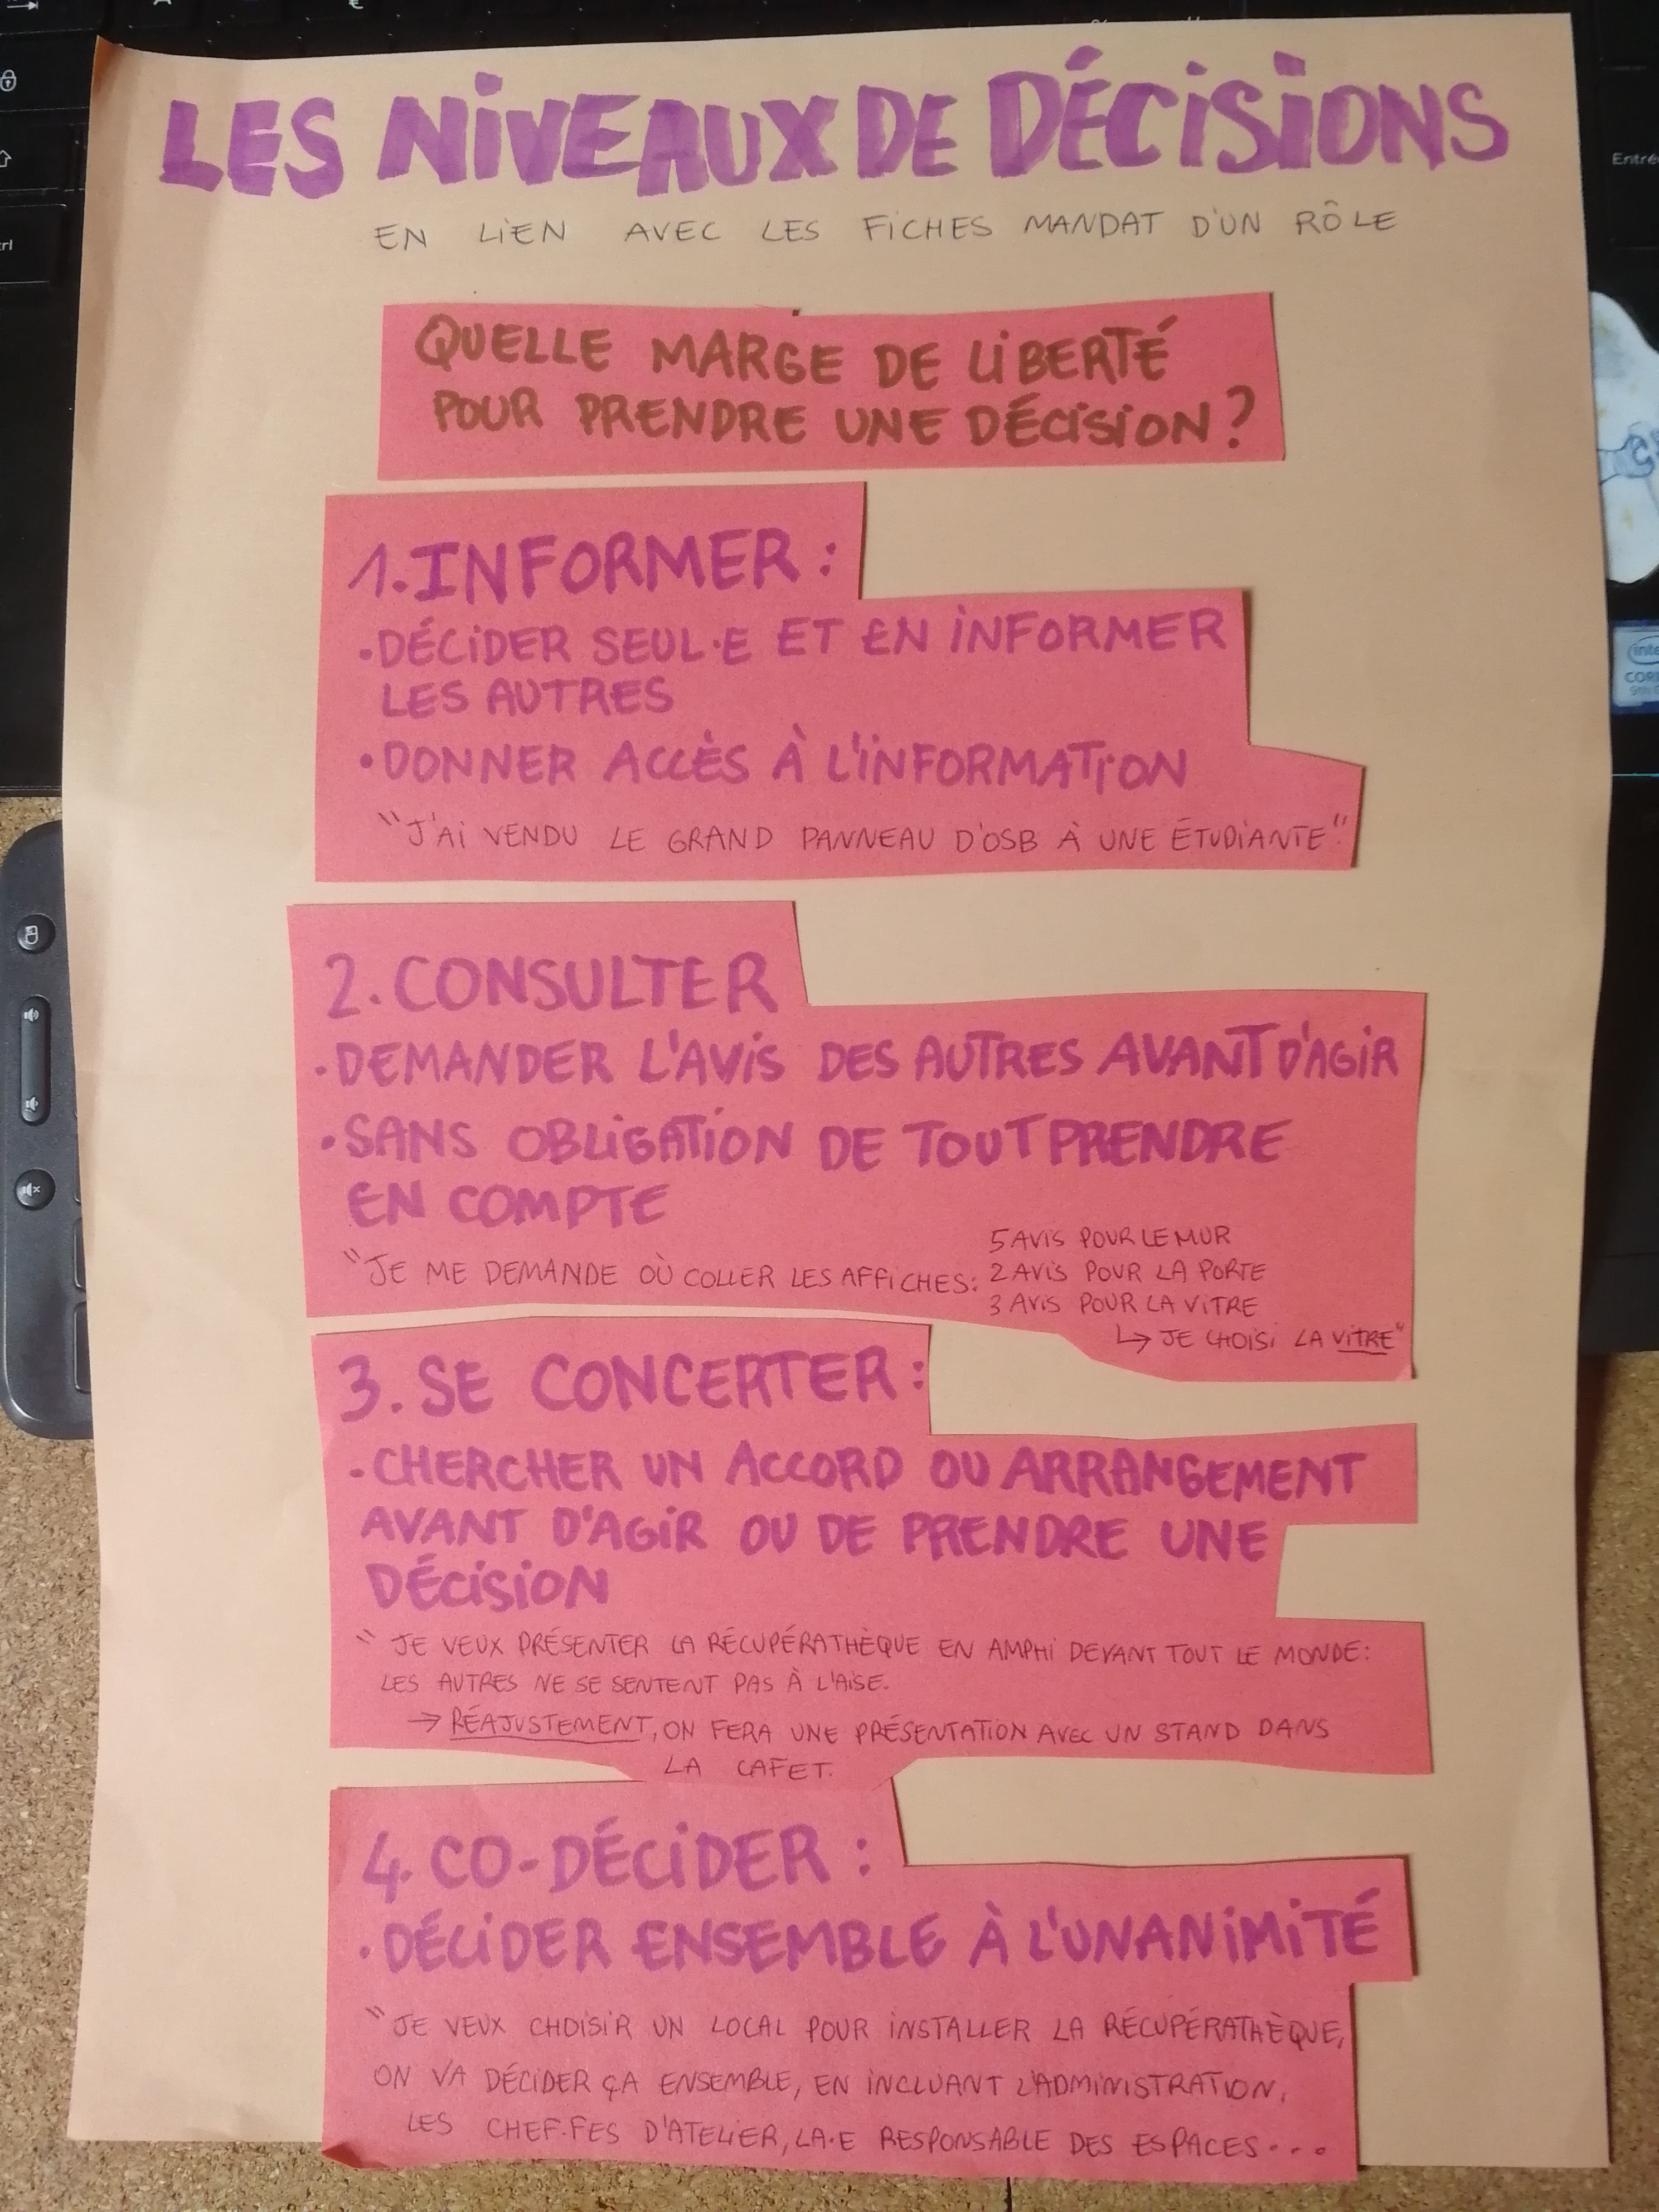 LES NIVEAUX DE DÉCISIONS
EN LIEN AVEC LES FICHES MANDAT D'UN RÔLE
QUELLE MARGE DE LIBERTÉ
POUR PRENDRE UNE DÉCISION ?
1. INFORMER :
• DÉCIDER SEUL·E ET EN INFORMER
LES AUTRES
• DONNER ACCÈS À L'INFORMATION
"J'AI VENDU LE GRAND PANNEAU D'OSB À UNE ÉTUDIANTE"
2. CONSULTER
• DEMANDER L'AVIS DES AUTRES AVANT D'AGIR
• SANS OBLIGATION DE TOUT PRENDRE
EN COMPTE
"JE ME DEMANDE OÙ COLLER LES AFFICHES:
5 AVIS POUR LE MUR
2 AVIS POUR LA PORTE
3 AVIS POUR LA VITRE
↳ JE CHOISI LA VITRE"
3. SE CONCERTER :
• CHERCHER UN ACCORD OU ARRANGEMENT
AVANT D'AGIR OU DE PRENDRE UNE
DÉCISION
"JE VEUX PRÉSENTER LA RÉCUPÉRATHÈQUE EN AMPHI DEVANT TOUT LE MONDE:
LES AUTRES NE SE SENTENT PAS À L'AISE.
→ RÉAJUSTEMENT, ON FERA UNE PRÉSENTATION AVEC UN STAND DANS
LA CAFET.
4. CO-DÉCIDER :
• DÉCIDER ENSEMBLE À L'UNANIMITÉ
"JE VEUX CHOISIR UN LOCAL POUR INSTALLER LA RÉCUPÉRATHÈQUE,
ON VA DÉCIDER ÇA ENSEMBLE, EN INCLUANT L'ADMINISTRATION,
LES CHEF·FES D'ATELIER, LA·E RESPONSABLE DES ESPACES...